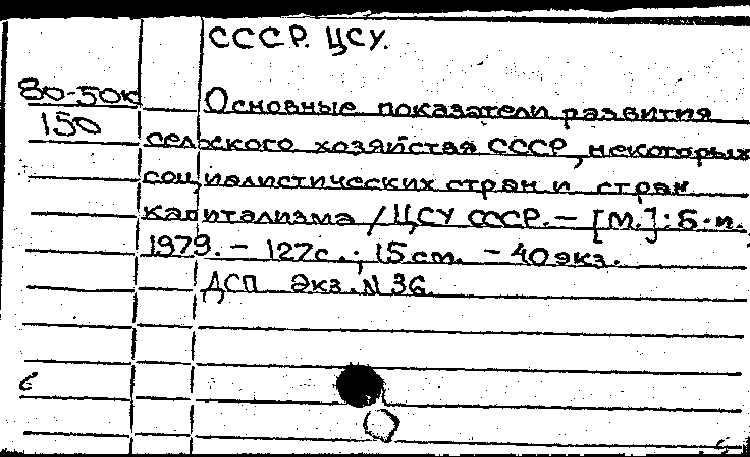 СССР. ЦСУ.
80-50к
150
Основные показатели развития
сельского хозяйства СССР, некоторых
социалистических стран и стран
капитализма / ЦСУ СССР. – [М.]: Б. и.,
1979. – 127с.; 15 ст. – 40 экз.
ДСП Экз. N 36